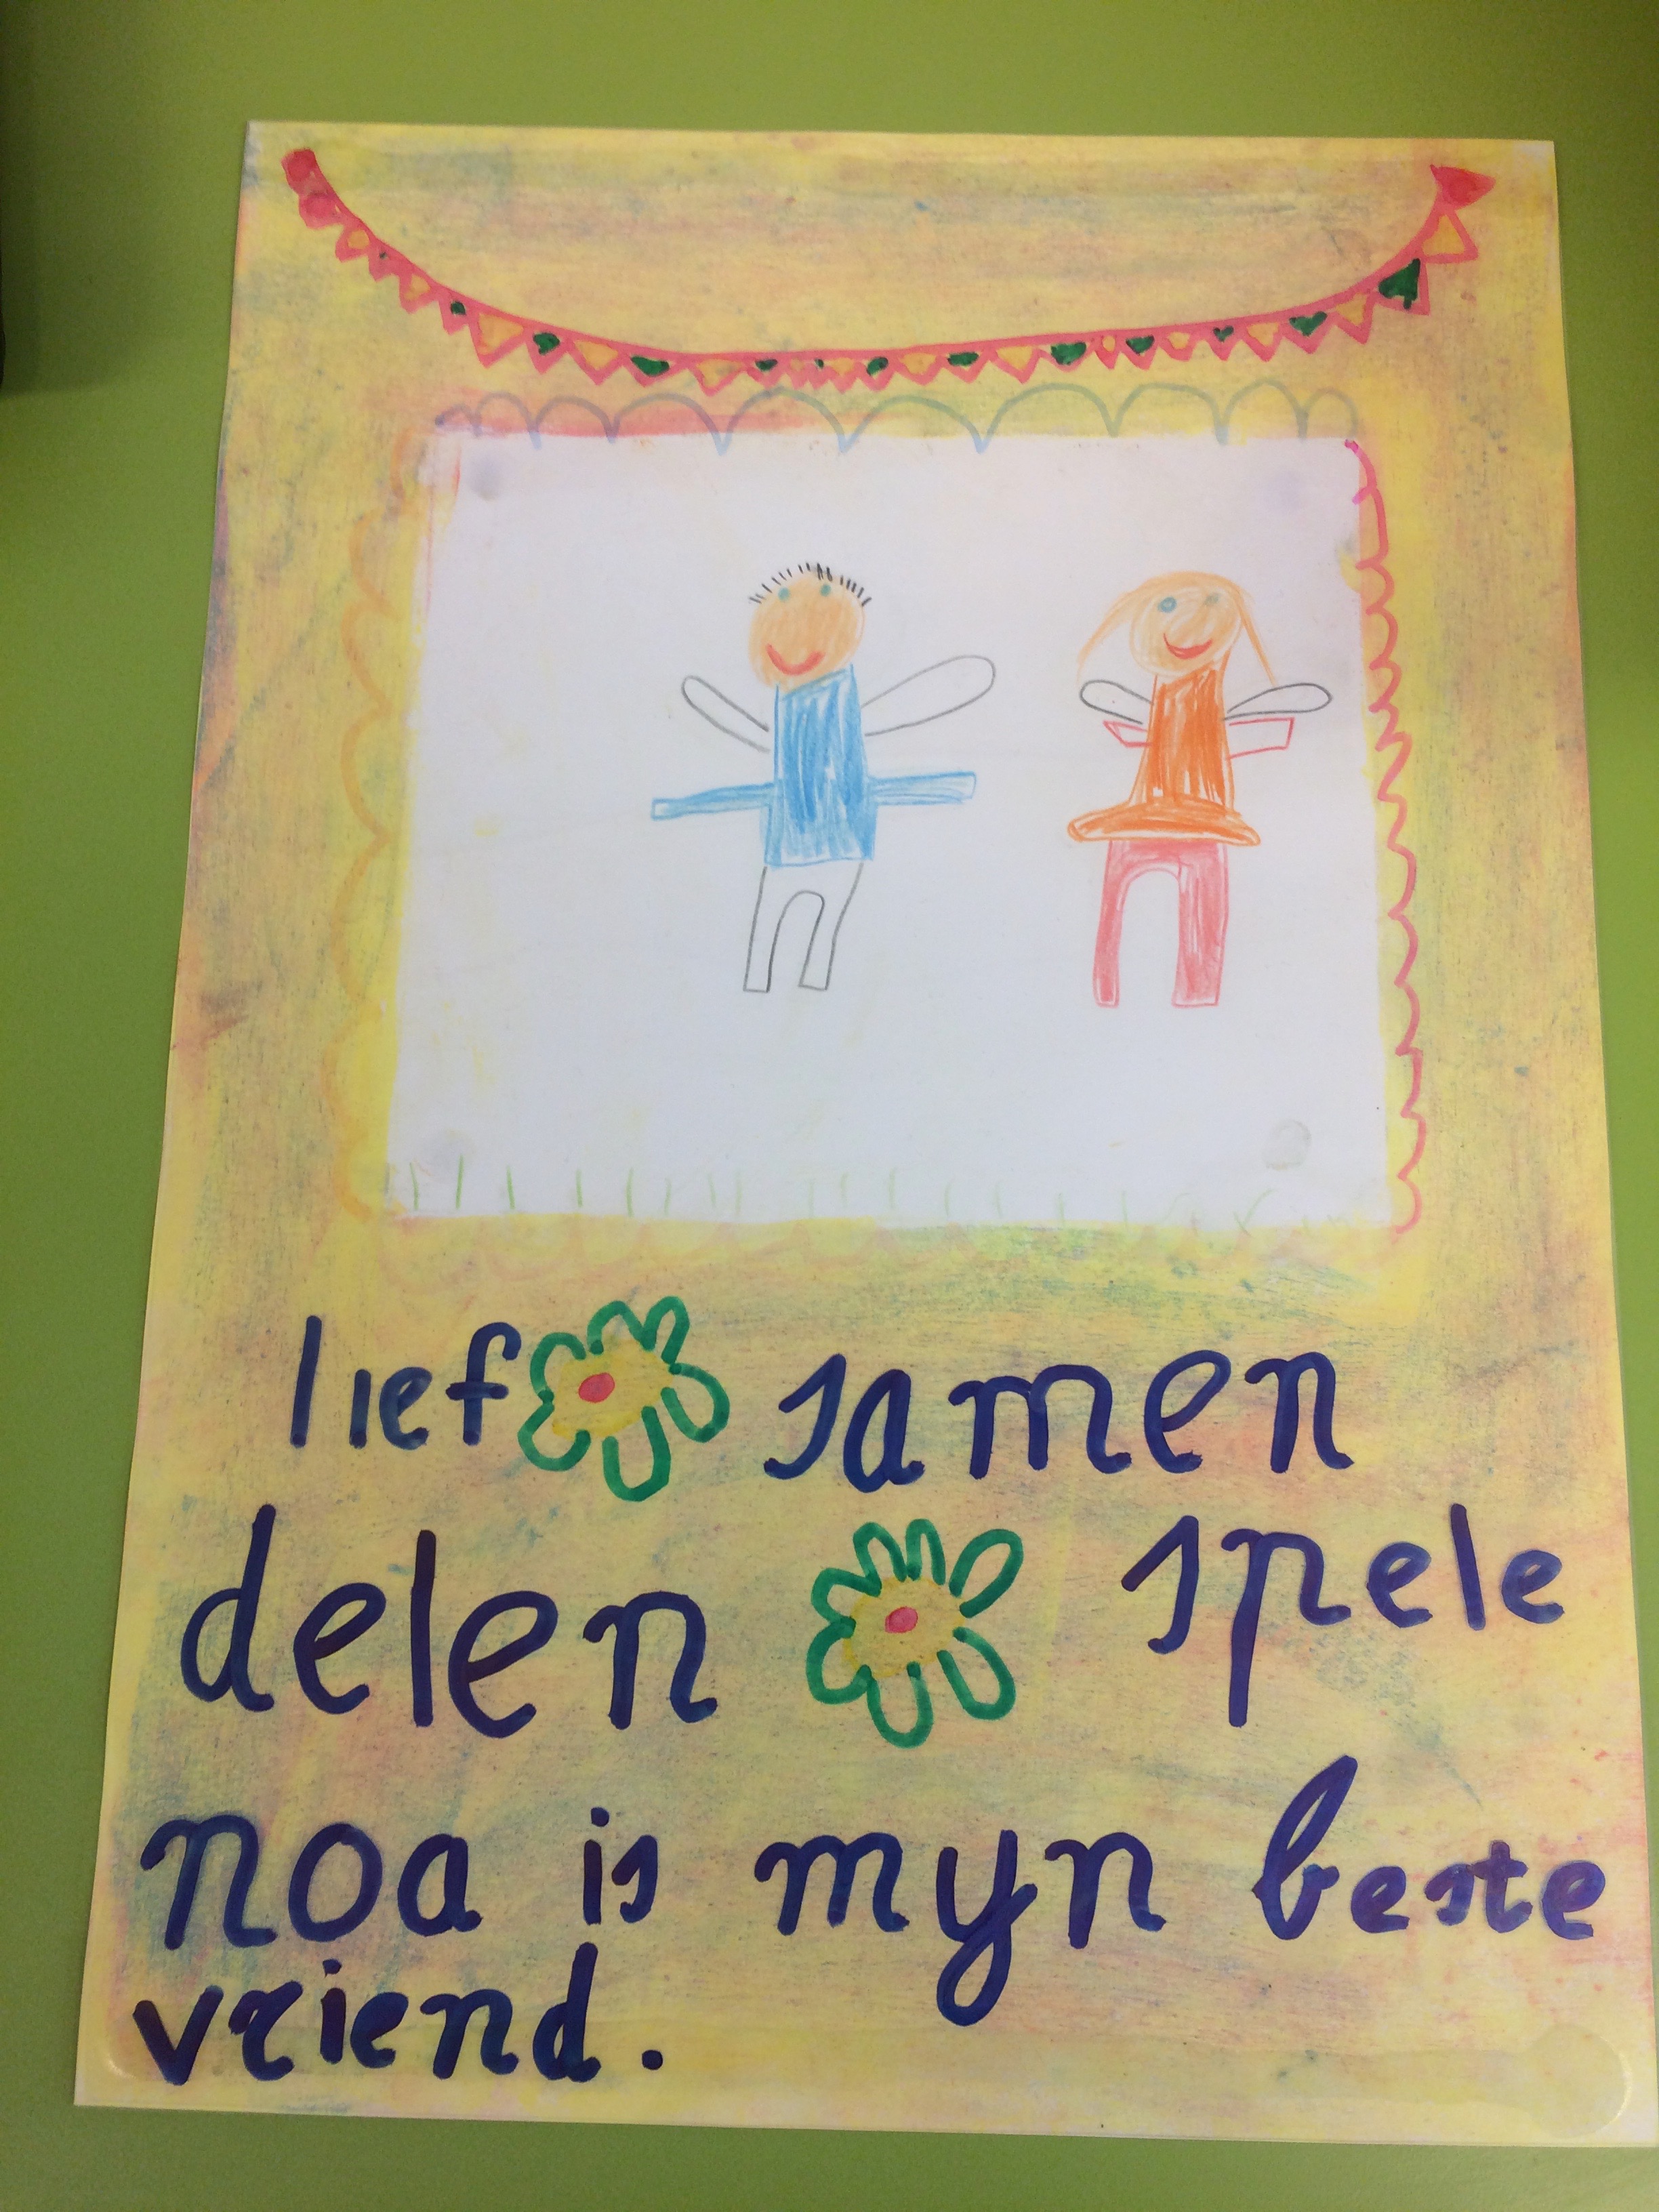 lief samen
delen spele
noa is myn beste
vriend.